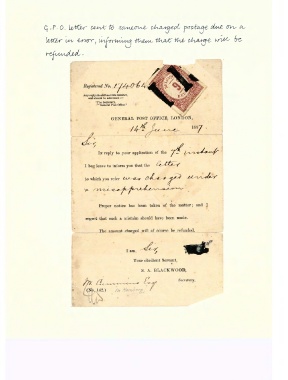 G.P.O. letter sent to someone charged postage due on a
letter in error, informing them that the charge will be
refunded.
Registered No. 174064
GENERAL POST OFFICE, LONDON,
14th June 1887.
Sir,
In reply to your application of the 7th instant
I beg leave to inform you that the letter
to which you refer was charged under
a misapprehension
Proper notice has been taken of the matter; and I
regret that such a mistake should have been made.
The amount charged will of course be refunded.
I am, Sir,
Your obedient Servant,
S. A. BLACKWOOD,
Secretary.
Esq